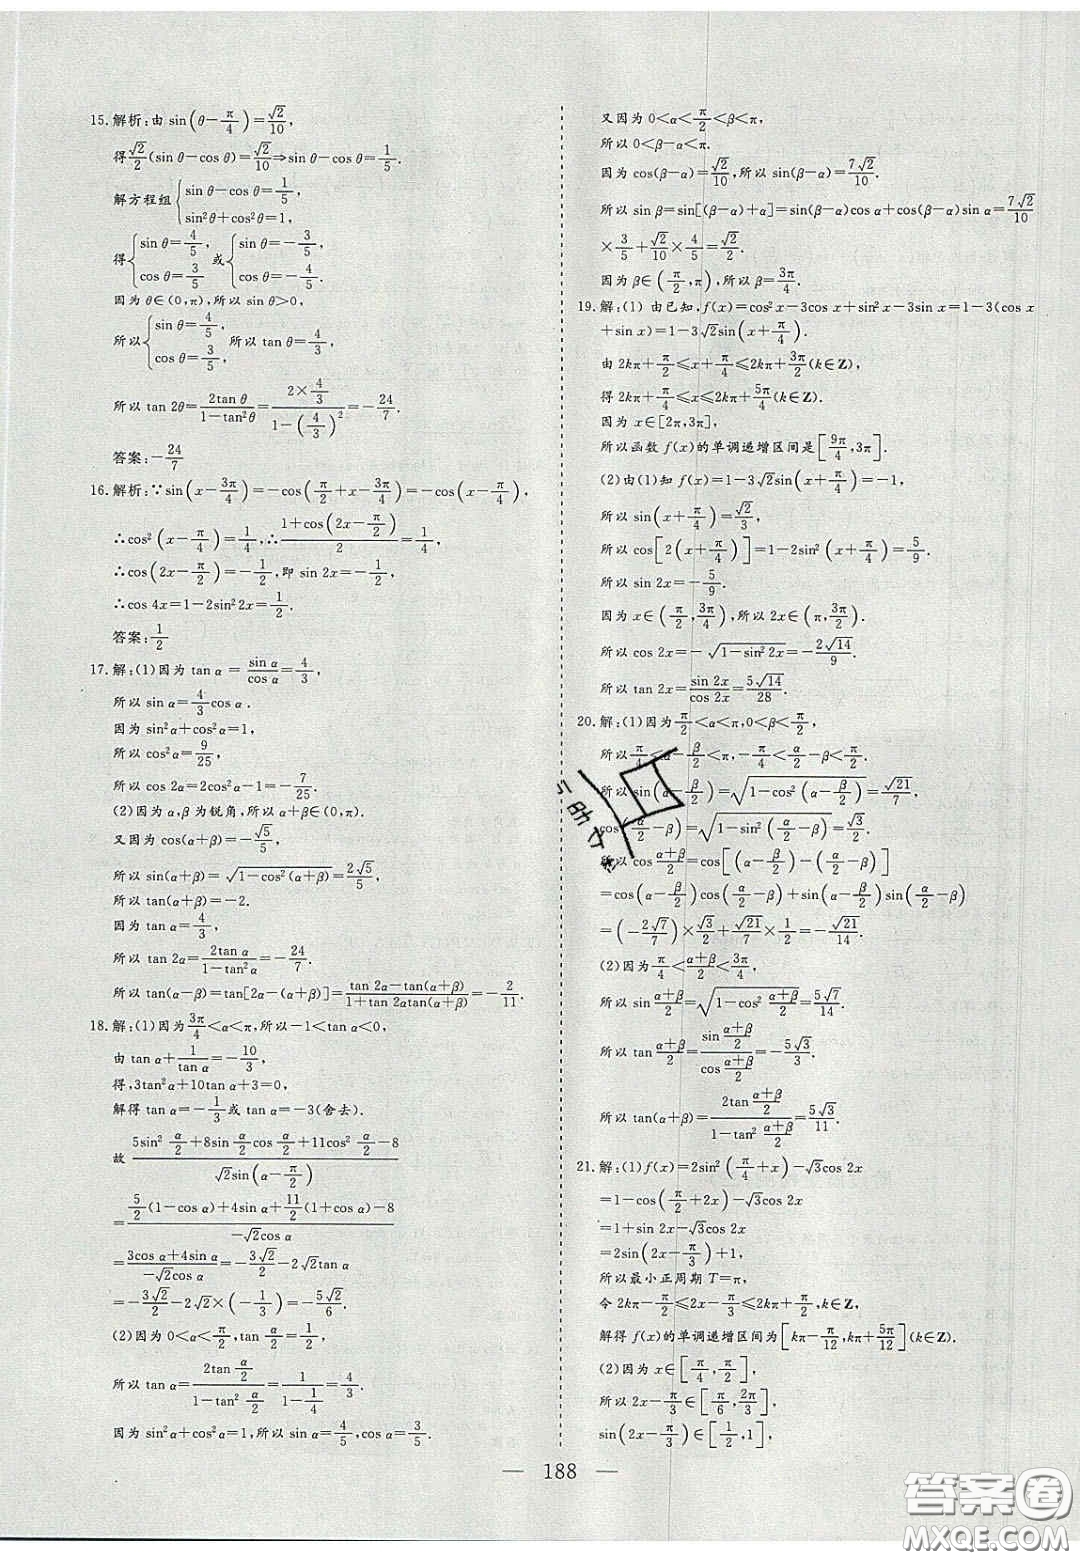 15.解析:由 sin(θ−π/4)=√2/10,
得 √2/2(sin θ−cos θ)=√2/10⇒sin θ−cos θ=1/5.
解方程组{sin θ−cos θ=1/5, sin²θ+cos²θ=1,
得{sin θ=4/5, cos θ=3/5 或{sin θ=−3/5, cos θ=−4/5.
因为 θ∈(0,π),所以 sin θ>0,
所以{sin θ=4/5, cos θ=3/5, 所以 tan θ=4/3,
所以 tan 2θ=2tan θ/(1−tan²θ)=(2×4/3)/(1−(4/3)²)=−24/7.
答案:−24/7
16.解析:∵sin(x−3π/4)=−cos(π/2+x−3π/4)=−cos(x−π/4),
∴cos²(x−π/4)=1/4,∴(1+cos(2x−π/2))/2=1/4,
∴cos(2x−π/2)=−1/2,即 sin 2x=−1/2,
∴cos 4x=1−2sin²2x=1/2.
答案:1/2
17.解:(1)因为 tan α=sin α/cos α=4/3,
所以 sin α=4/3cos α.
因为 sin²α+cos²α=1,
所以 cos²α=9/25,
所以 cos 2α=2cos²α−1=−7/25.
(2)因为 α,β 为锐角,所以 α+β∈(0,π).
又因为 cos(α+β)=−√5/5,
所以 sin(α+β)=√(1−cos²(α+β))=2√5/5,
所以 tan(α+β)=−2.
因为 tan α=4/3,
所以 tan 2α=2tan α/(1−tan²α)=−24/7.
所以 tan(α−β)=tan[2α−(α+β)]=(tan 2α−tan(α+β))/(1+tan 2αtan(α+β))=−2/11.
18.解:(1)因为3π/4<α<π,所以−1<tan α<0,
由 tan α+1/tan α=−10/3,
得,3tan²α+10tan α+3=0,
解得 tan α=−1/3或 tan α=−3(舍去).
故 (5sin²α/2+8sin α/2cos α/2+11cos²α/2−8)/(√2sin(α−π/2))
=(5/2(1−cos α)+4sin α+11/2(1+cos α)−8)/(−√2cos α)
=(3cos α+4sin α)/(−√2cos α)=−3√2/2−2√2tan α
=−3√2/2−2√2×(−1/3)=−5√2/6.
(2)因为 0<α<π/2,tan α/2=1/2,
所以 tan α=(2tan α/2)/(1−tan²α/2)=1/(1−1/4)=4/3.
因为 sin²α+cos²α=1,所以 sin α=4/5,cos α=3/5.
又因为 0<α<π/2<β<π,
所以 0<β−α<π.
因为 cos(β−α)=√2/10,所以 sin(β−α)=7√2/10.
所以 sin β=sin[(β−α)+α]=sin(β−α)cos α+cos(β−α)sin α=7√2/10
×3/5+√2/10×4/5=√2/2.
因为 β∈(π/2,π),所以 β=3π/4.
19.解:(1) 由已知,f(x)=cos²x−3cos x+sin²x−3sin x=1−3(cos x
+sin x)=1−3√2sin(x+π/4).
由 2kπ+π/2≤x+π/4≤2kπ+3π/2(k∈Z),
得 2kπ+π/4≤x≤2kπ+5π/4(k∈Z).
因为 x∈[2π,3π],
所以函数 f(x)的单调递增区间是[9π/4,3π].
(2)由(1)知 f(x)=1−3√2sin(x+π/4)=−1,
所以 sin(x+π/4)=√2/3,
所以 cos[2(x+π/4)]=1−2sin²(x+π/4)=5/9.
所以 sin 2x=−5/9.
因为 x∈(π/2,3π/4),所以 2x∈(π,3π/2).
所以 cos 2x=−√(1−sin²2x)=−2√14/9.
所以 tan 2x=sin 2x/cos 2x=5√14/28.
20.解:(1)因为π/2<α<π,0<β<π/2,
所以π/4<α−β/2<π,−π/4<α/2−β<π/2.
所以 sin(α−β/2)=√(1−cos²(α−β/2))=√21/7,
cos(α/2−β)=√(1−sin²(α/2−β))=√3/2.
所以 cos(α+β)/2=cos[(α−β/2)−(α/2−β)]
=cos(α−β/2)cos(α/2−β)+sin(α−β/2)sin(α/2−β)
=(−2√7/7)×√3/2+√21/7×1/2=−√21/14.
(2)因为π/4<(α+β)/2<3π/4,
所以 sin(α+β)/2=√(1−cos²(α+β)/2)=5√7/14.
所以 tan(α+β)/2=(sin(α+β)/2)/(cos(α+β)/2)=−5√3/3.
所以 tan(α+β)=(2tan(α+β)/2)/(1−tan²(α+β)/2)=5√3/11.
21.解:(1)f(x)=2sin²(π/4+x)−√3cos 2x
=1−cos(π/2+2x)−√3cos 2x
=1+sin 2x−√3cos 2x
=2sin(2x−π/3)+1,
所以最小正周期 T=π,
令 2kπ−π/2≤2x−π/3≤2kπ+π/2,k∈Z,
解得 f(x)的单调递增区间为[kπ−π/12,kπ+5π/12](k∈Z).
(2)因为 x∈[π/4,π/2],
所以 2x−π/3∈[π/6,2π/3],
sin(2x−π/3)∈[1/2,1],
— 188 —
答案圈
MXQE.COM